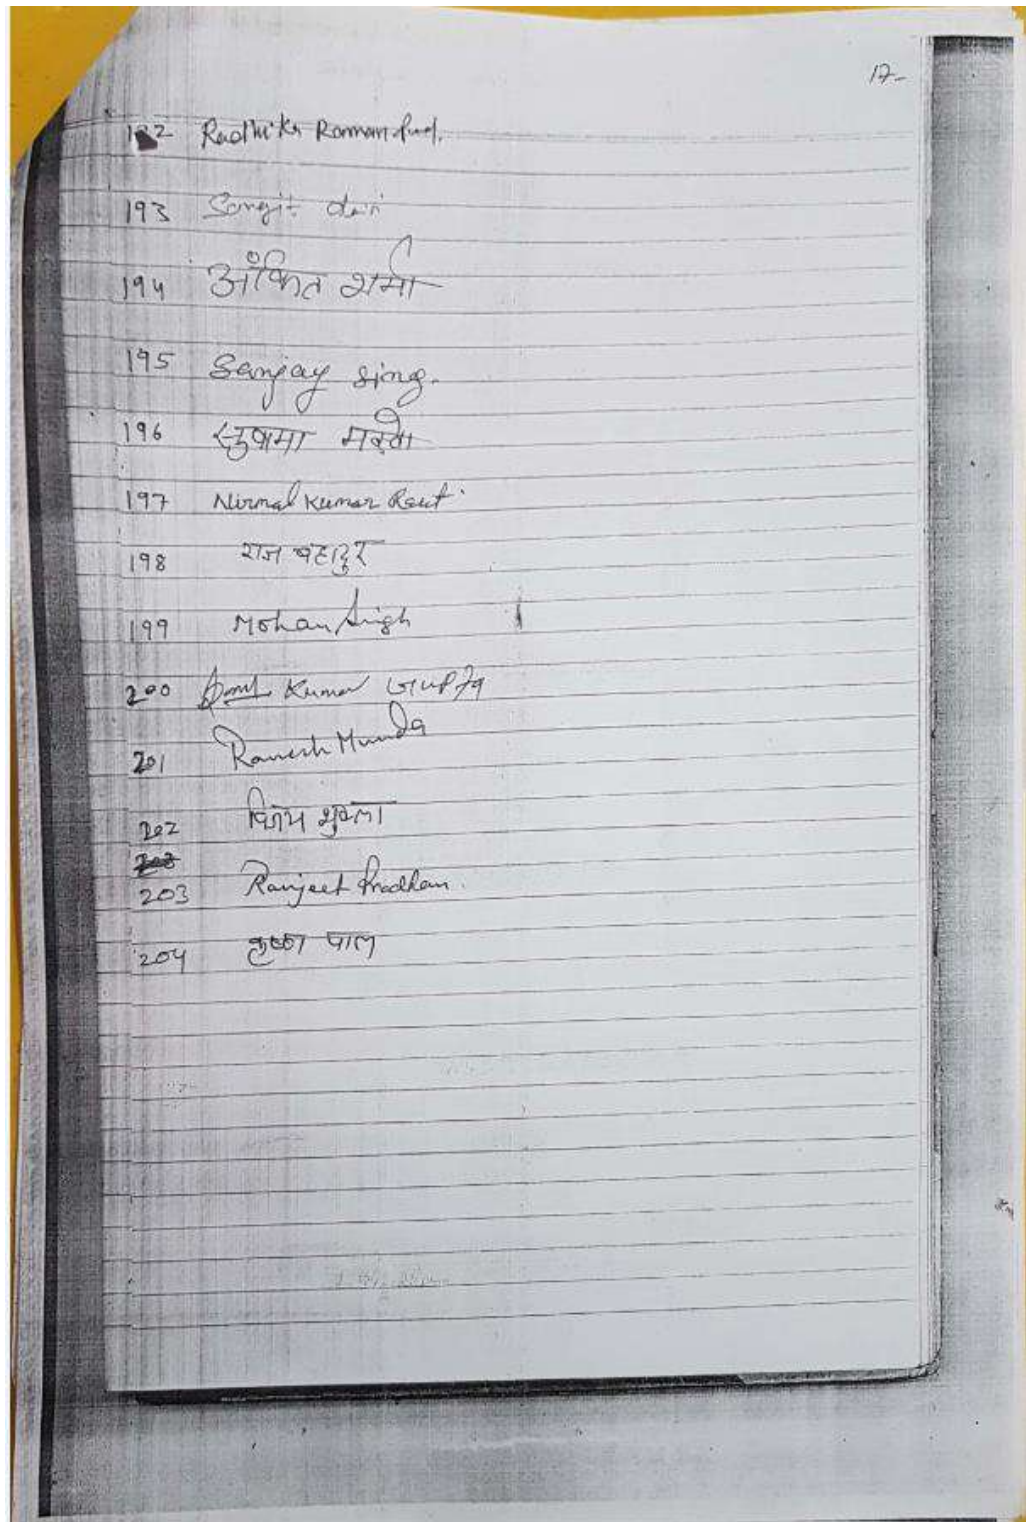 17-
192 Radhika Raman
193 Sangit devi
194 अंकित शर्मा
195 Sanjay sing.
196 सुषमा
197 Nirmal Kumar Raut
198 राज बहादुर
199 Mohan Singh
200 Kumar Gupta
201 Ramesh Munda
202 विजय शुक्ला
203
203 Ranjeet Pradhan.
204 कृष्णा पाल